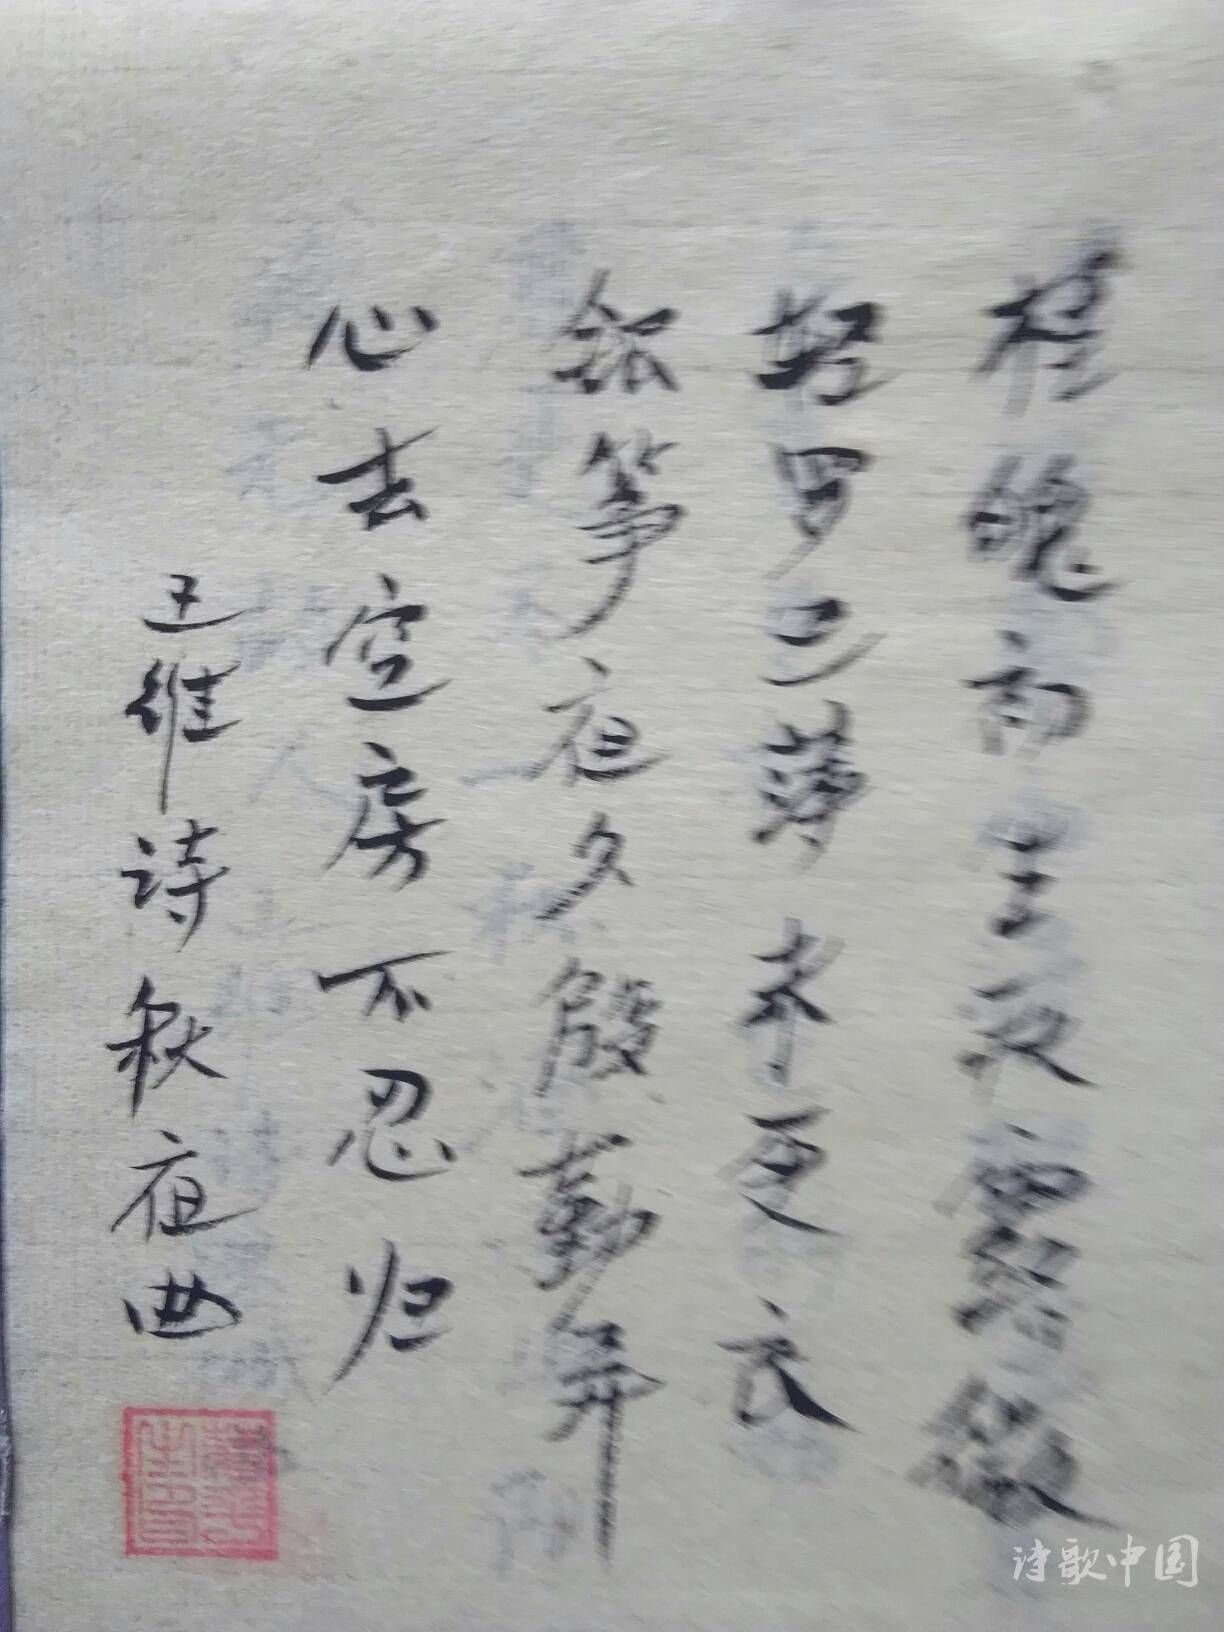 桂魄初生秋露微
轻罗已薄未更衣
银筝夜久殷勤弄
心去空房不忍归
王维诗秋夜曲
诗歌中国